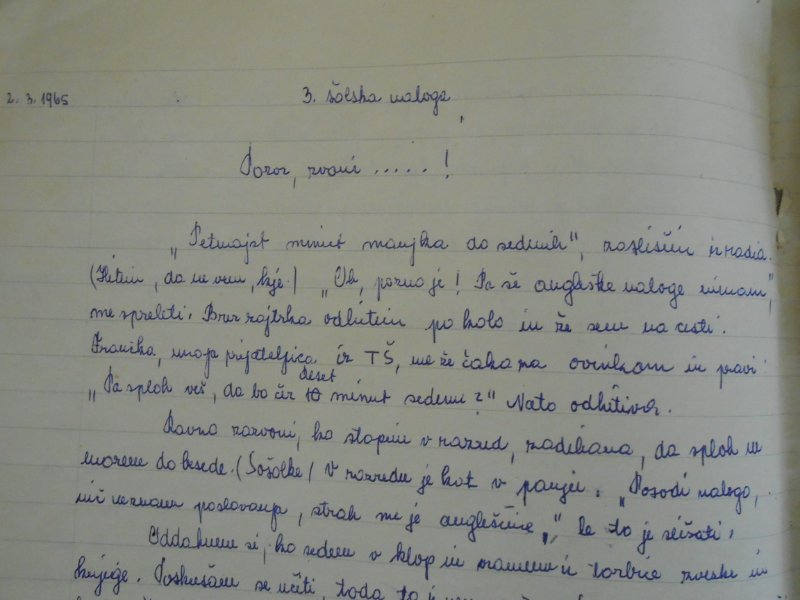 2. 3. 1965
3. šolska naloga
Pozor, zvoni .....!
„Petnajst minut manjka do sedmih", zaslišim iz radia.
(Hitim, da ne vem, kje.) „Oh, pozno je! Pa še angleške naloge nimam",
me spreleti. Brez zajtrka odhitim po kolo in že sem na cesti.
Francka, moja prijateljica iz TŠ, me že čaka za ovinkom in pravi:
„Pa sploh veš, da bo čez deset 10 minut sedem?" Nato odhitiva.
Ravno zazvoni, ko stopim v razred, zadihana, da sploh ne
morem do besede. (Sošolke) V razredu je kot v panju. „Posodi nalogo,
nič neznam poslovanja, strah me je angleščine", le to je slišati.
Oddahnem si, ko sedem v klop in vzamem iz torbice zvezke in
knjige. Poskušam se učiti, toda to